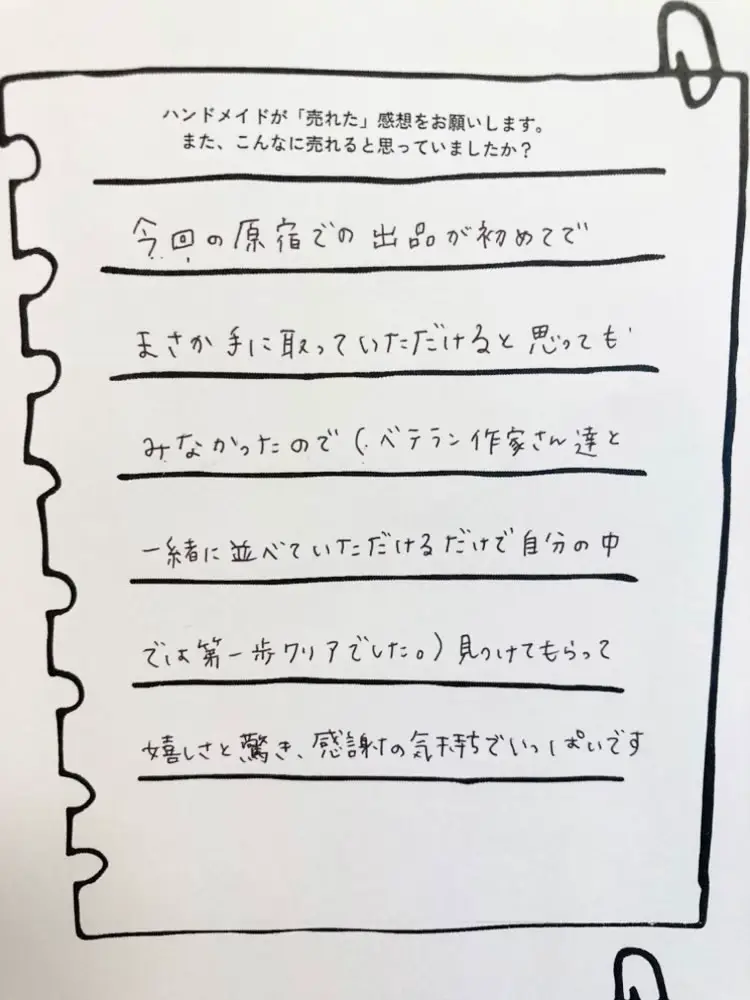 ハンドメイドが「売れた」感想をお願いします。
また、こんなに売れると思っていましたか？
今回の原宿での出品が初めてで
まさか手に取っていただけると思っても
みなかったので（ベテラン作家さん達と
一緒に並べていただけるだけで自分の中
では第一歩クリアでした。）見つけてもらって
嬉しさと驚き、感謝の気持ちでいっぱいです